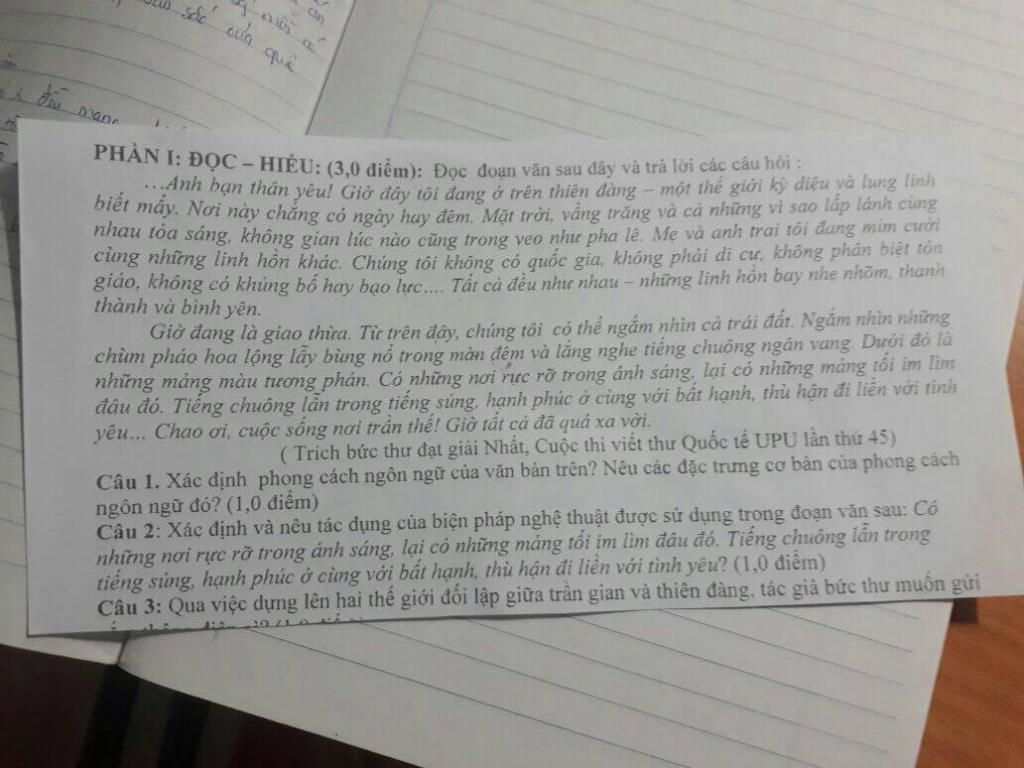 sắc của quê
PHẦN I: ĐỌC – HIỂU: (3,0 điểm): Đọc đoạn văn sau đây và trả lời các câu hỏi :
…Anh bạn thân yêu! Giờ đây tôi đang ở trên thiên đàng – một thế giới kỳ diệu và lung linh
biết mấy. Nơi này chẳng có ngày hay đêm. Mặt trời, vầng trăng và cả những vì sao lấp lánh cùng
nhau tỏa sáng, không gian lúc nào cũng trong veo như pha lê. Mẹ và anh trai tôi đang mỉm cười
cùng những linh hồn khác. Chúng tôi không có quốc gia, không phải di cư, không phân biệt tôn
giáo, không có khủng bố hay bạo lực.... Tất cả đều như nhau – những linh hồn bay nhẹ nhõm, thanh
thành và bình yên.
Giờ đang là giao thừa. Từ trên đây, chúng tôi có thể ngắm nhìn cả trái đất. Ngắm nhìn những
chùm pháo hoa lộng lẫy bùng nổ trong màn đêm và lắng nghe tiếng chuông ngân vang. Dưới đó là
những mảng màu tương phản. Có những nơi rực rỡ trong ánh sáng, lại có những mảng tối im lìm
đâu đó. Tiếng chuông lẫn trong tiếng súng, hạnh phúc ở cùng với bất hạnh, thù hận đi liền với tình
yêu... Chao ơi, cuộc sống nơi trần thế! Giờ tất cả đã quá xa vời.
( Trích bức thư đạt giải Nhất, Cuộc thi viết thư Quốc tế UPU lần thứ 45)
Câu 1. Xác định phong cách ngôn ngữ của văn bản trên? Nêu các đặc trưng cơ bản của phong cách
ngôn ngữ đó? (1,0 điểm)
Câu 2: Xác định và nêu tác dụng của biện pháp nghệ thuật được sử dụng trong đoạn văn sau: Có
những nơi rực rỡ trong ánh sáng, lại có những mảng tối im lìm đâu đó. Tiếng chuông lẫn trong
tiếng súng, hạnh phúc ở cùng với bất hạnh, thù hận đi liền với tình yêu? (1,0 điểm)
Câu 3: Qua việc dựng lên hai thế giới đối lập giữa trần gian và thiên đàng, tác giả bức thư muốn gửi